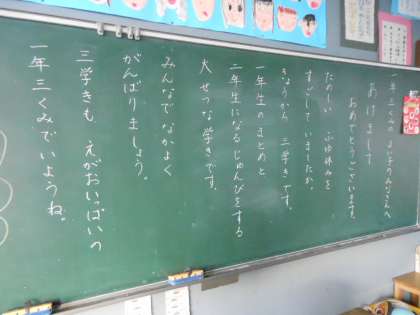 一年三くみの よい子のみなさんへ
あけまして
おめでとうございます。
たのしい ふゆ休みを
すごしていましたか。
きょうから 三学きです。
一年生のまとめと
二年生になるじゅんびをする
大せつな学きです。
みんなでなかよく
がんばりましょう。
三学きも えがおいっぱいの
一年三くみでいようね。